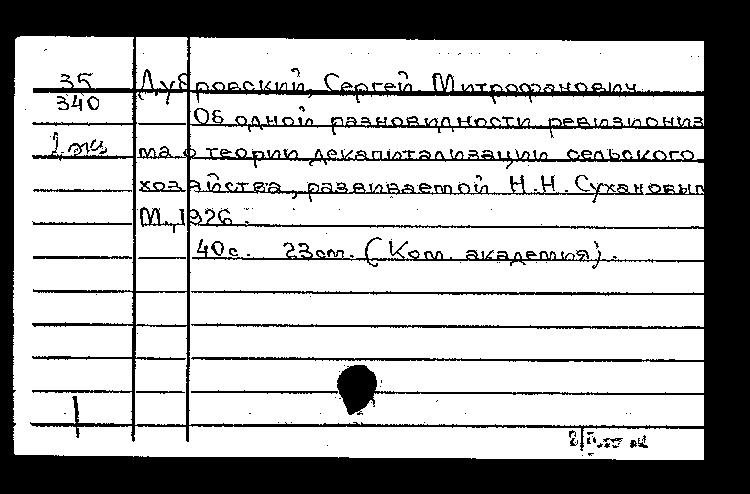 35 Дубровский, Сергей Митрофанович
340
Об одной разновидности ревизиониз
2 экз
ма о теории декапитализации сельского
хозяйства, развиваемой Н.Н. Сухановым
М., 1926.
40с. 23см. (Ком. академия).